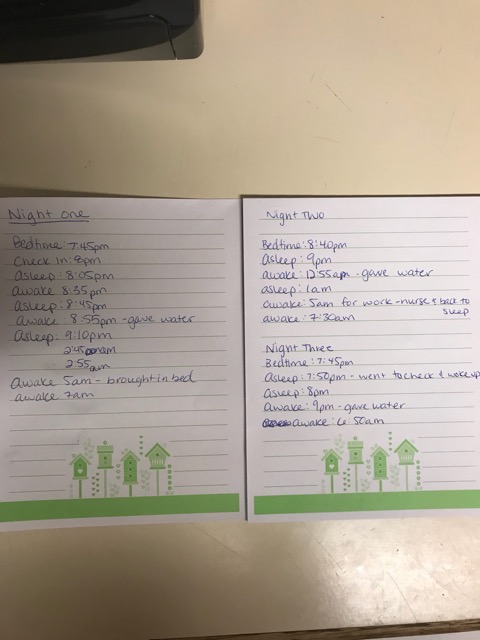 Night One
Bedtime: 7:45pm
Check In: 8pm
Asleep: 8:05pm
Awake 8:35pm
Asleep: 8:45pm
Awake: 8:55pm - gave water
Asleep: 9:10pm
2:45am
2:55am
Awake 5am - brought in bed
awake 7am
Night Two
Bedtime: 8:40pm
Asleep: 9pm
awake: 12:55am - gave water
asleep: 1am
awake: 5am for work - nurse & back to
sleep
awake: 7:30am
Night Three
Bedtime: 7:45pm
Asleep: 7:50pm - went to check & woke up
Asleep: 8pm
Awake: 9pm - gave water
awake: 6:50am